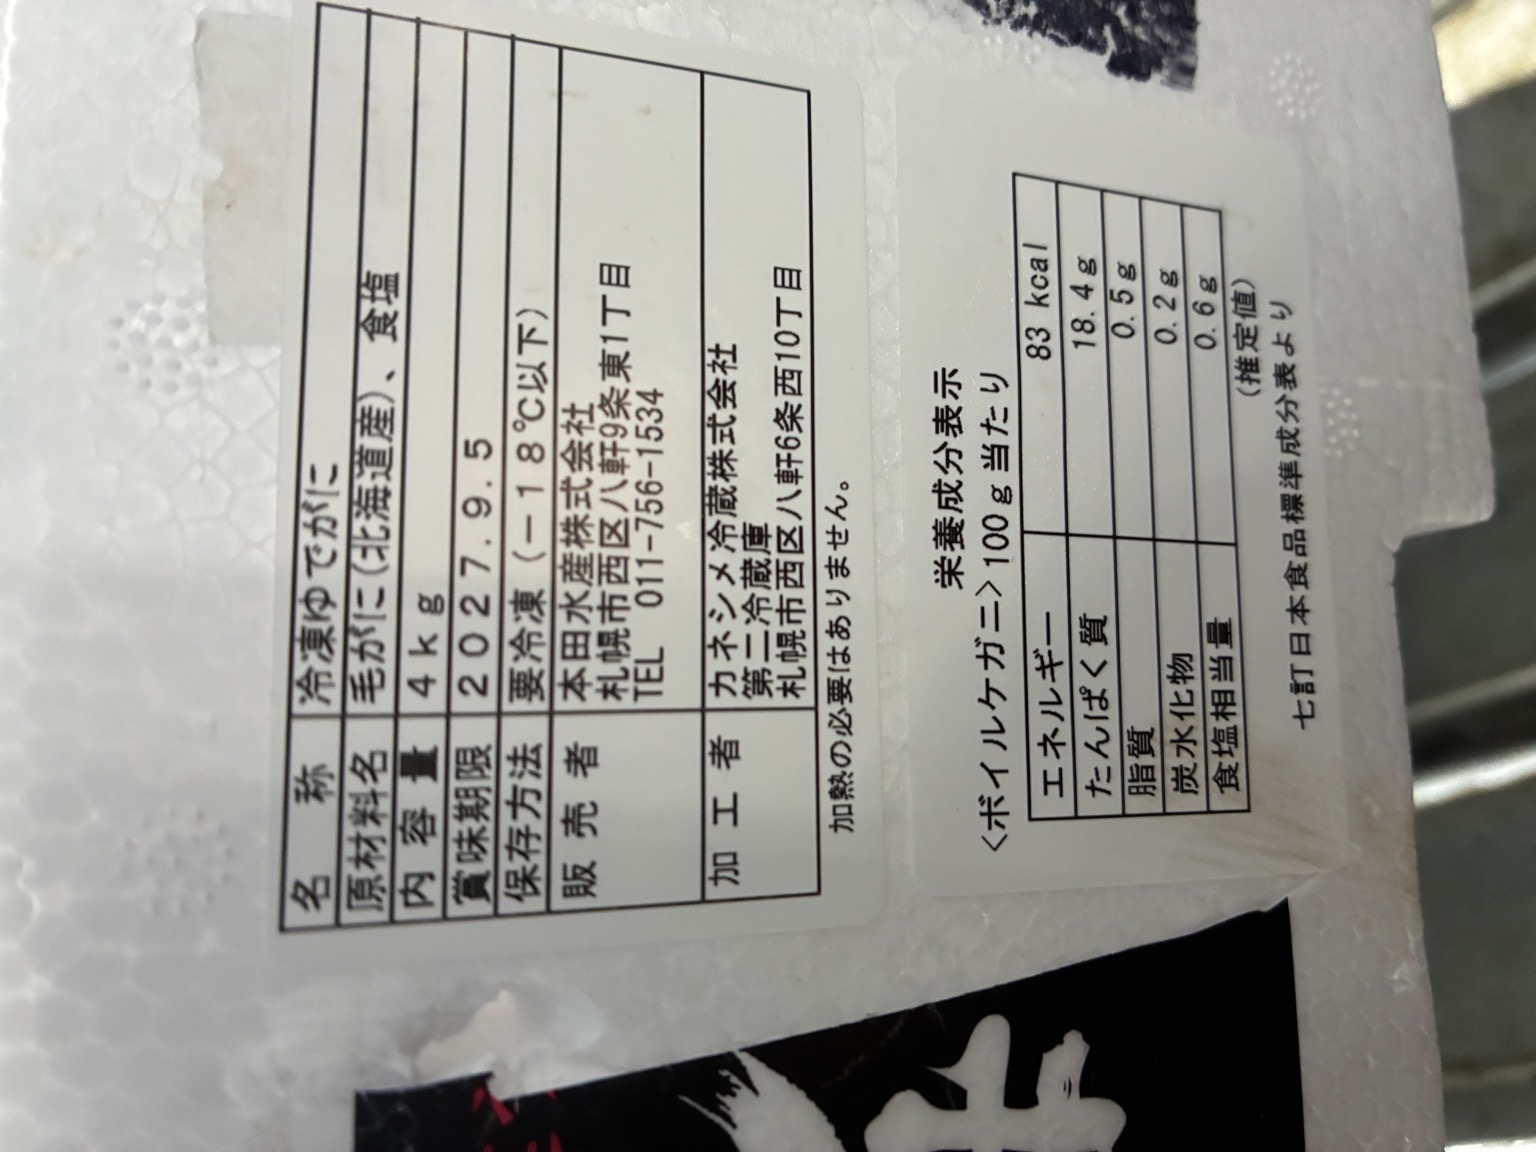 名称 冷凍ゆでがに
原材料名 毛がに(北海道産)、食塩
内容量 4kg
賞味期限 2027.9.5
保存方法 要冷凍(－18℃以下)
販売者 本田水産株式会社
札幌市西区八軒9条東1丁目
TEL 011-756-1534
加工者 カネシメ冷蔵株式会社
第二冷蔵庫
札幌市西区八軒6条西10丁目
加熱の必要はありません。
栄養成分表示
<ボイルケガニ>100g当たり
エネルギー 83 kcal
たんぱく質 18.4g
脂質 0.5g
炭水化物 0.2g
食塩相当量 0.6g
(推定値)
七訂日本食品標準成分表より